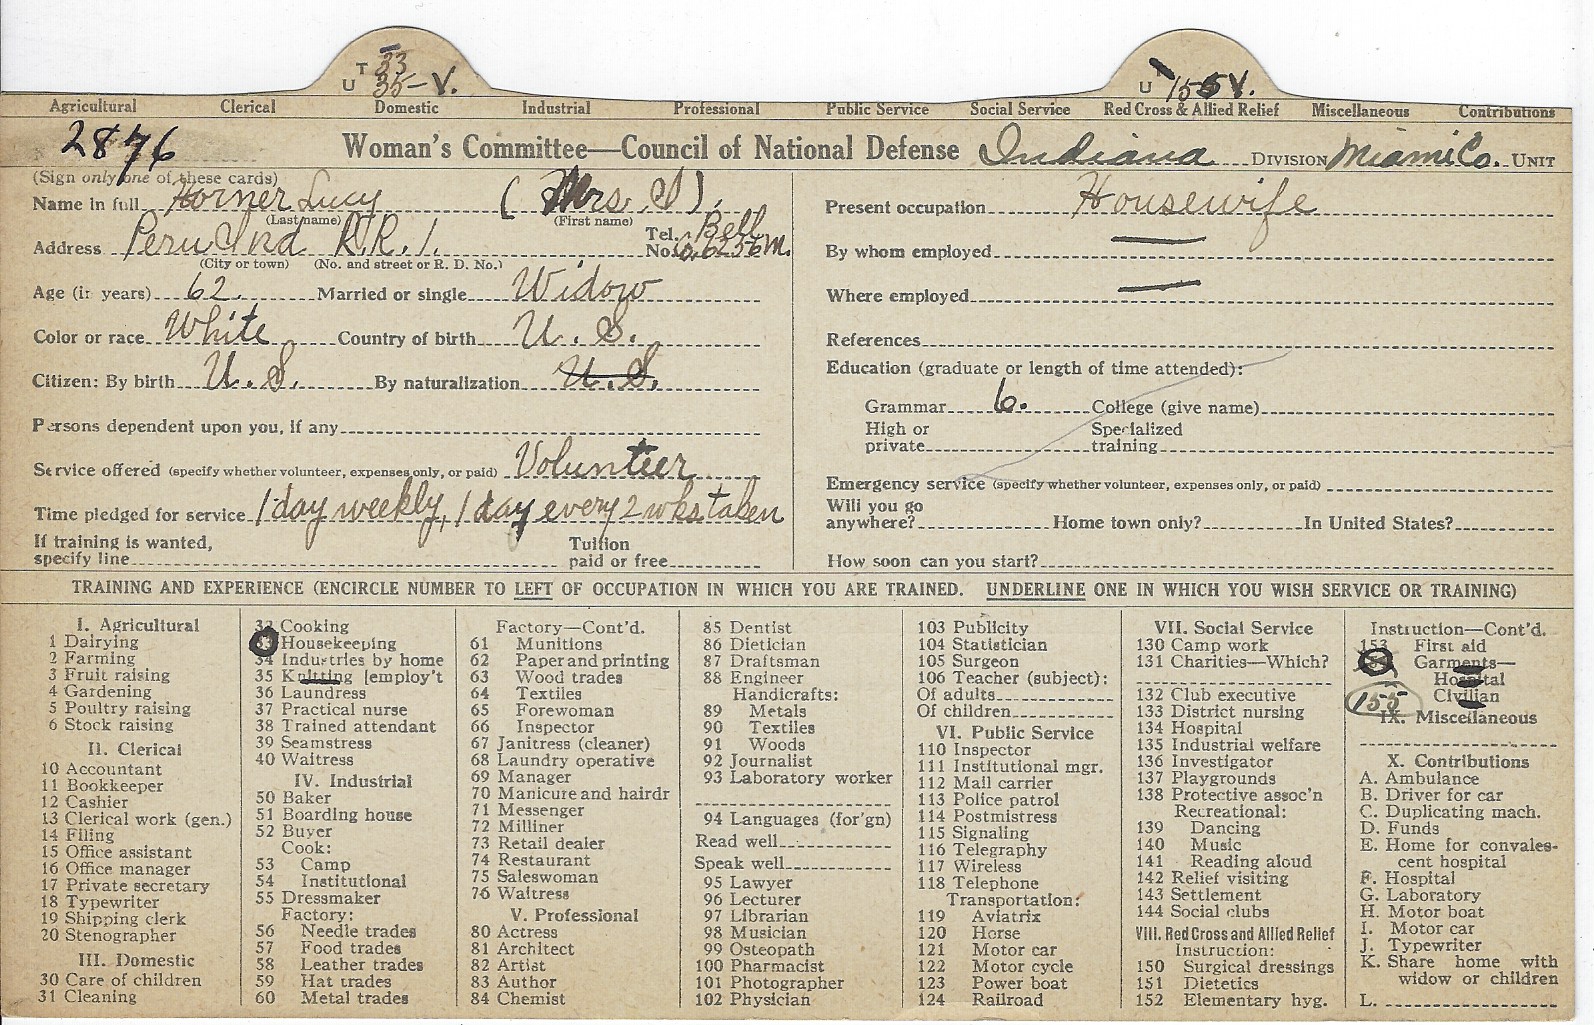 T 33
U 35-V.
U 155 V.
Agricultural Clerical Domestic Industrial Professional Public Service Social Service Red Cross & Allied Relief Miscellaneous Contributions
2876 Woman's Committee—Council of National Defense Indiana DIVISION Miami Co. UNIT
(Sign only one of these cards)
Name in full Horner Lucy (Mrs. S).
(Last name) (First name)
Address Peru Ind R.R.1. Tel. No. Bell 6256M.
(City or town) (No. and street or R. D. No.)
Age (in years) 62. Married or single Widow
Color or race White Country of birth U. S.
Citizen: By birth U. S. By naturalization U. S.
Persons dependent upon you, if any
Service offered (specify whether volunteer, expenses only, or paid) Volunteer
Time pledged for service 1 day weekly, 1 day every 2 wks taken
If training is wanted, specify line Tuition paid or free
Present occupation Housewife
By whom employed —
Where employed —
References
Education (graduate or length of time attended):
Grammar 6. College (give name)
High or private Specialized training
Emergency service (specify whether volunteer, expenses only, or paid)
Will you go anywhere? Home town only? In United States?
How soon can you start?
TRAINING AND EXPERIENCE (ENCIRCLE NUMBER TO LEFT OF OCCUPATION IN WHICH YOU ARE TRAINED. UNDERLINE ONE IN WHICH YOU WISH SERVICE OR TRAINING)
I. Agricultural
1 Dairying
2 Farming
3 Fruit raising
4 Gardening
5 Poultry raising
6 Stock raising
II. Clerical
10 Accountant
11 Bookkeeper
12 Cashier
13 Clerical work (gen.)
14 Filing
15 Office assistant
16 Office manager
17 Private secretary
18 Typewriter
19 Shipping clerk
20 Stenographer
III. Domestic
30 Care of children
31 Cleaning
32 Cooking
33 Housekeeping
34 Industries by home
35 Knitting [employ't
36 Laundress
37 Practical nurse
38 Trained attendant
39 Seamstress
40 Waitress
IV. Industrial
50 Baker
51 Boarding house
52 Buyer
Cook:
53 Camp
54 Institutional
55 Dressmaker
Factory:
56 Needle trades
57 Food trades
58 Leather trades
59 Hat trades
60 Metal trades
Factory—Cont'd.
61 Munitions
62 Paper and printing
63 Wood trades
64 Textiles
65 Forewoman
66 Inspector
67 Janitress (cleaner)
68 Laundry operative
69 Manager
70 Manicure and hairdr
71 Messenger
72 Milliner
73 Retail dealer
74 Restaurant
75 Saleswoman
76 Waitress
V. Professional
80 Actress
81 Architect
82 Artist
83 Author
84 Chemist
85 Dentist
86 Dietician
87 Draftsman
88 Engineer
Handicrafts:
89 Metals
90 Textiles
91 Woods
92 Journalist
93 Laboratory worker
94 Languages (for'gn)
Read well
Speak well
95 Lawyer
96 Lecturer
97 Librarian
98 Musician
99 Osteopath
100 Pharmacist
101 Photographer
102 Physician
103 Publicity
104 Statistician
105 Surgeon
106 Teacher (subject):
Of adults
Of children
VI. Public Service
110 Inspector
111 Institutional mgr.
112 Mail carrier
113 Police patrol
114 Postmistress
115 Signaling
116 Telegraphy
117 Wireless
118 Telephone
Transportation:
119 Aviatrix
120 Horse
121 Motor car
122 Motor cycle
123 Power boat
124 Railroad
VII. Social Service
130 Camp work
131 Charities—Which?
132 Club executive
133 District nursing
134 Hospital
135 Industrial welfare
136 Investigator
137 Playgrounds
138 Protective assoc'n
Recreational:
139 Dancing
140 Music
141 Reading aloud
142 Relief visiting
143 Settlement
144 Social clubs
VIII. Red Cross and Allied Relief
Instruction:
150 Surgical dressings
151 Dietetics
152 Elementary hyg.
Instruction—Cont'd.
153 First aid
Garments—
Hospital
155 Civilian
IX. Miscellaneous
X. Contributions
A. Ambulance
B. Driver for car
C. Duplicating mach.
D. Funds
E. Home for convales-
cent hospital
F. Hospital
G. Laboratory
H. Motor boat
I. Motor car
J. Typewriter
K. Share home with
widow or children
L.